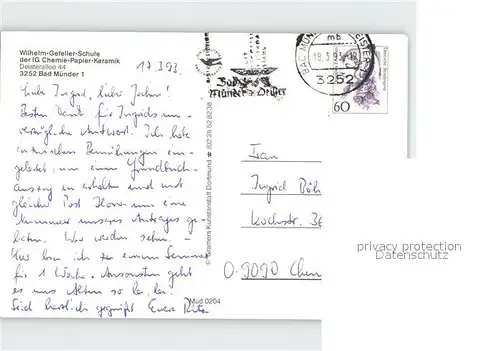 Wilhelm-Gefeller-Schule
der IG Chemie-Papier-Keramik
Deisterallee 44
3252 Bad Münder 1
17.3.93
Liebe Ingrid, lieber Jochen!
Besten Dank für Ingrids un-
verzügliche Antwort. Ich habe
inzwischen Bemühungen ein-
geleitet, um einen Grundbuch-
auszug zu erhalten und mit
gleicher Post Horn um eine
Nummer unseres Antrages ge-
beten. Wir werden sehen. –
Hier bin ich zu einem Seminar
für 1 Woche. Ansonsten geht
es uns Alten so la, la.
Seid herzlich gegrüßt Eure Rita
Müd 0204
Bad
Münder · Deister
BAD MÜNDER
mb
18.3.93
3252
Deutsche Bundespost
60
Frau
Ingrid
Kochstr. 36
O-9090 Chem
privacy protection
Datenschutz